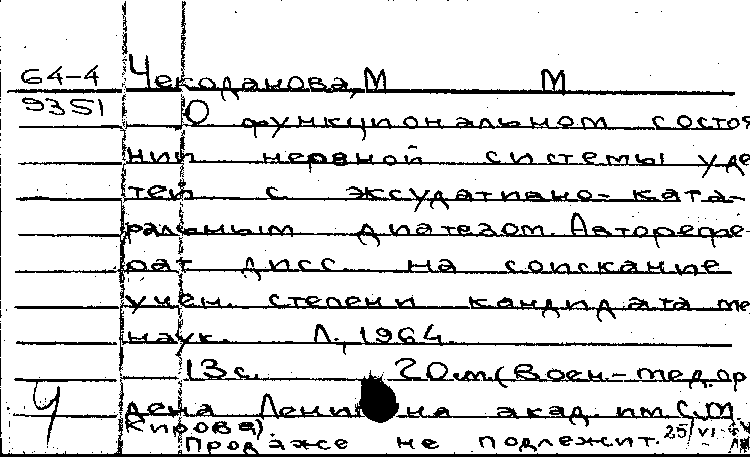 64-4 Чекоданова, М М
9351 О функциональном состоя
нии нервной системы у де
тей с эксудативно-ката-
ральным диатезом. Авторефе-
рат дисс. на соискание
учен. степени кандидата ме
наук. Л., 1964.
13 с. 20 см. (Воен-мед. ор
дена Ленина акад. им. С.М.
Кирова).
Ч Продаже не подлежит. 25/VI